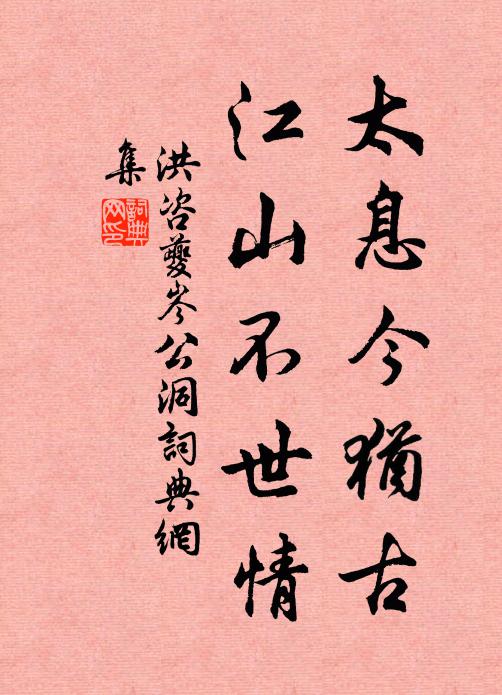 太息今猶古
江山不世情
洪咨夔岑公洞詞典網
集
詞典
网印